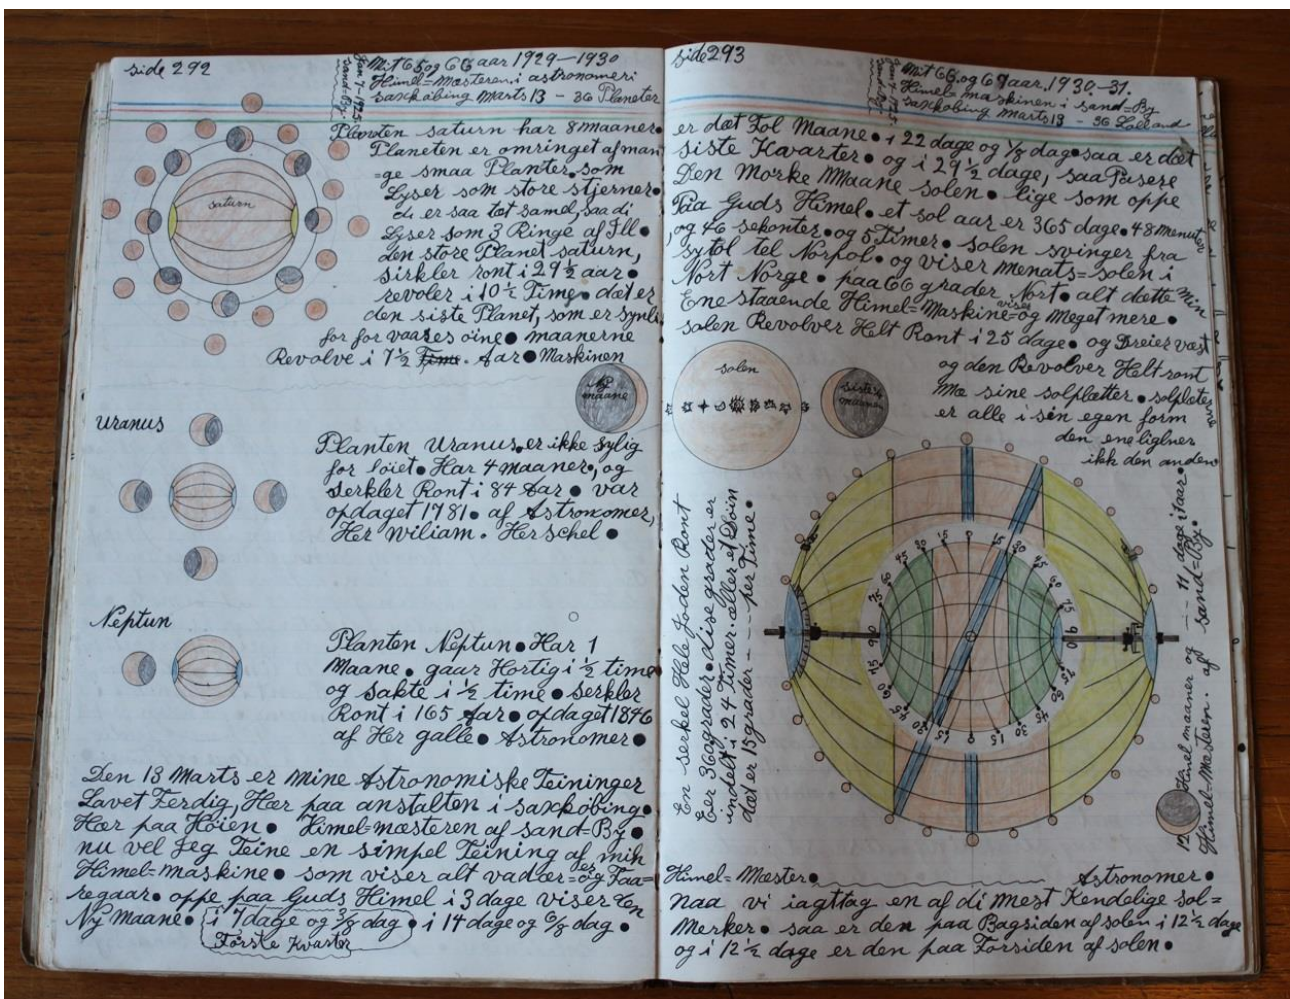 side 292
Mit 65 og 66 aar 1929-1930
Himel=Mæsteren i astronomeri
saxkøbing Marts 13 - 36 Planeter
Planten saturn har 8 maaner.
Planeten er omringet af man
=ge smaa Planter, som
Lyser som store stjerner.
di er saa tæt samel, saa di
Lyser som 3 Ringe af Ill.
den store Planet saturn,
sirkler ront i 29 1/2 aar.
revoler i 10 1/2 Time. dæt er
den siste Planet, som er synli
for for vaares øine. maanerne
Revolve i 7 1/2 Aar. Maskinen
saturn
Ny maane
Uranus
Planten Uranus, er ikke sylig
for løiet. Har 4 maaner, og
serkler Ront i 84 Aar. var
opdaget 1781. af Astronomer,
Her Wiliam. Herschel.
Neptun
Planten Neptun. Har 1
Maane. gaar Hortig i 1/2 time
og sakte i 1/2 time. serkler
Ront i 165 Aar. opdaget 1846
af Her galle. Astronomer.
Den 13 Marts er mine Astronomiske Teininger
Lavet Ferdig, Hær paa anstalten i saxkøbing.
Hær paa Høien. Himel=mæsteren af sand=By.
nu vel Jeg Teine en simpel Teining af mih
Himel=maskine. som viser alt vad ær=og Faa=
regaar. oppe paa Guds Himel i 3 dage viser Den
Ny Maane. i 7 dage og 3/8 dag. i 14 dage og 6/8 dag.
Første Kvarter
side 293
Mit 66. og 67 aar. 1930-31.
Himel=maskinen i sand=By
saxkøbing Marts 13 - 36 Lolland
er dæt Fol Maane. i 22 dage og 1/8 dag. saa er dæt
siste Kvarter. og i 29 1/2 dage, saa Pasere
Den Mørke Maane solen. lige som oppe
Paa Guds Himel. et sol aar er 365 dage. 48 menuter
og 46 sekonter. og 5 Timer. solen svinger fra
sytol tel Norpol. og viser menats=solen i
Nort Norge. paa 66 grader Nort. alt dætte Min
Ene staaende Himel=Maskine viser og Meget mere.
solen Revolver Helt Ront i 25 dage. og Dreier væst
og den Revolver Helt ront
Mæ sine solplætter. solplæterne
er alle i sin egen form
den ene liglner
ikk den anden
solen
siste maanen
En serkel Hele Joden Ront
Eer 360 grader. dise grader er
indelt i 24 Timer. æller et Døin
dæt er 15 grader - - - per Time.
45 30 15 0 15 30 45 60 75 90
75 60 45 30 15 0 15 30 45 60 75 90
12 Himel maaner og - - - 11 dage i et aar.
Himel=Mæsteren. af sand=By.
Himel=Mæster. Astronomer.
naa vi iagttag en af di mest Kendelige sol=
Merker. saa er den paa Bagsiden af solen i 12 1/2 dage
og i 12 1/2 dage er den paa Forsiden af solen.